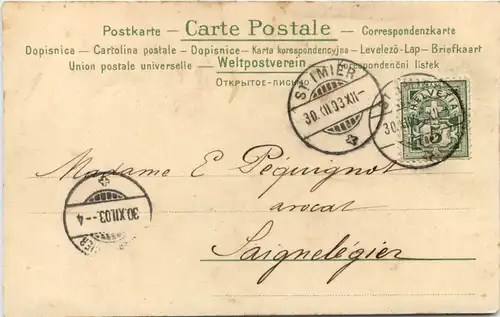 Postkarte – Carte Postale – Correspondenzkarte
Dopisnica – Cartolina postale – Dopisnice – Karta korespondencyjna – Levelező-Lap – Briefkaart
Union postale universelle – Weltpostverein – Korespondenční lístek
Открытое письмо
ST. IMIER
30.XII.03.XII–
HELVETIA
5
Madame E Péquignot
avocat
Saignelégier
30.XII.03.–4